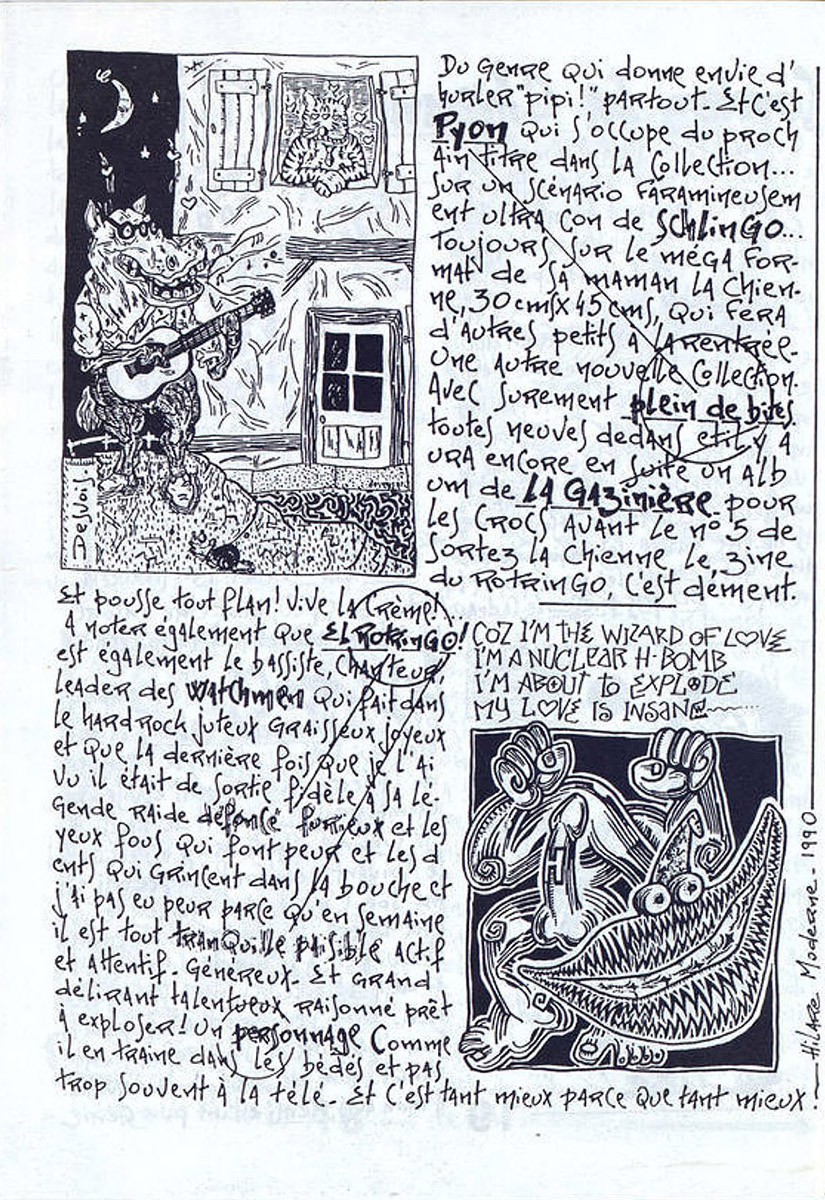 Du genre qui donne envie d'
hurler "pipi!" partout. Et c'est
Pyon qui s'occupe du proch
ain titre dans la collection...
sur un scénario faramineusem
ent ultra con de Schlingo...
Toujours sur le méga for-
mat de sa maman la Chien-
ne, 30 cms x 45 cms, qui fera
d'autres petits à la rentrée.
Une autre nouvelle collection.
Avec surement plein de bites
toutes neuves dedans et il y a
ura encore en suite un alb
um de La Gazinière pour
les Crocs avant le n° 5 de
Sortez la Chienne le zine
du Rotringo, c'est dément.
Desvois.
Et pousse tout flan! Vive la Crème!...
A noter également que El Rotringo!
est également le bassiste, chanteur,
leader des Watchmen qui fait dans
le hard rock juteux graisseux joyeux
et que la dernière fois que je l'ai
vu il était de sortie fidèle à sa lé-
gende raide défoncé furieux et les
yeux fous qui font peur et les d
ents qui grincent dans la bouche et
j'ai pas eu peur parce qu'en semaine
il est tout tranquille paisible actif
et attentif. Généreux. Et grand
délirant talentueux raisonné prêt
à exploser! Un personnage comme
il en traine dans les bédés et pas
trop souvent à la télé. Et c'est tant mieux parce que tant mieux!
Coz I'm the wizard of love
I'm a nuclear H-bomb
I'm about to explode
My love is insane
H
Hilare Moderne - 1990